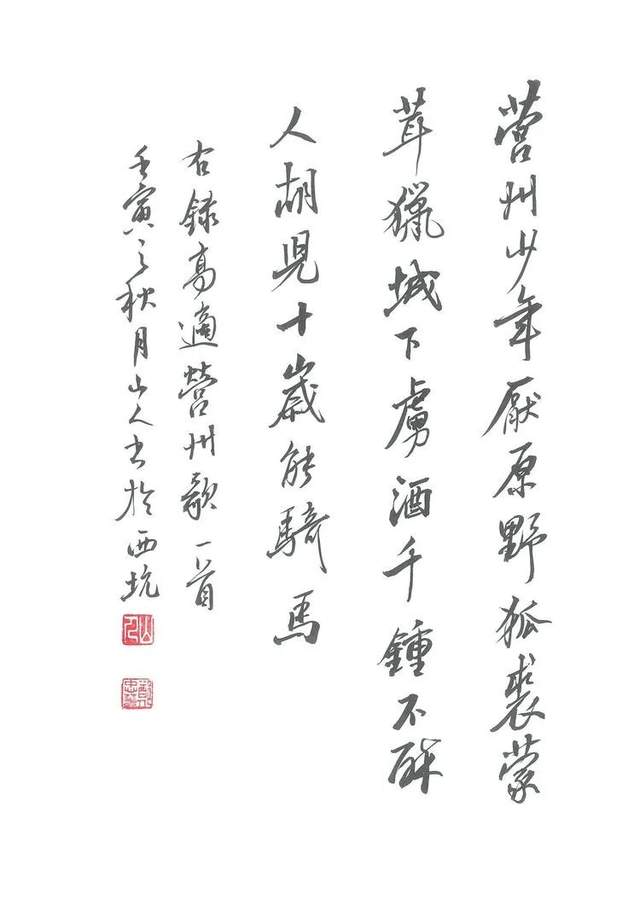 營州少年厭原野狐裘蒙
茸獵城下虜酒千鍾不醉
人胡兒十歲能騎馬
右錄高適營州歌一首
壬寅之秋月山人書於西坑
山人